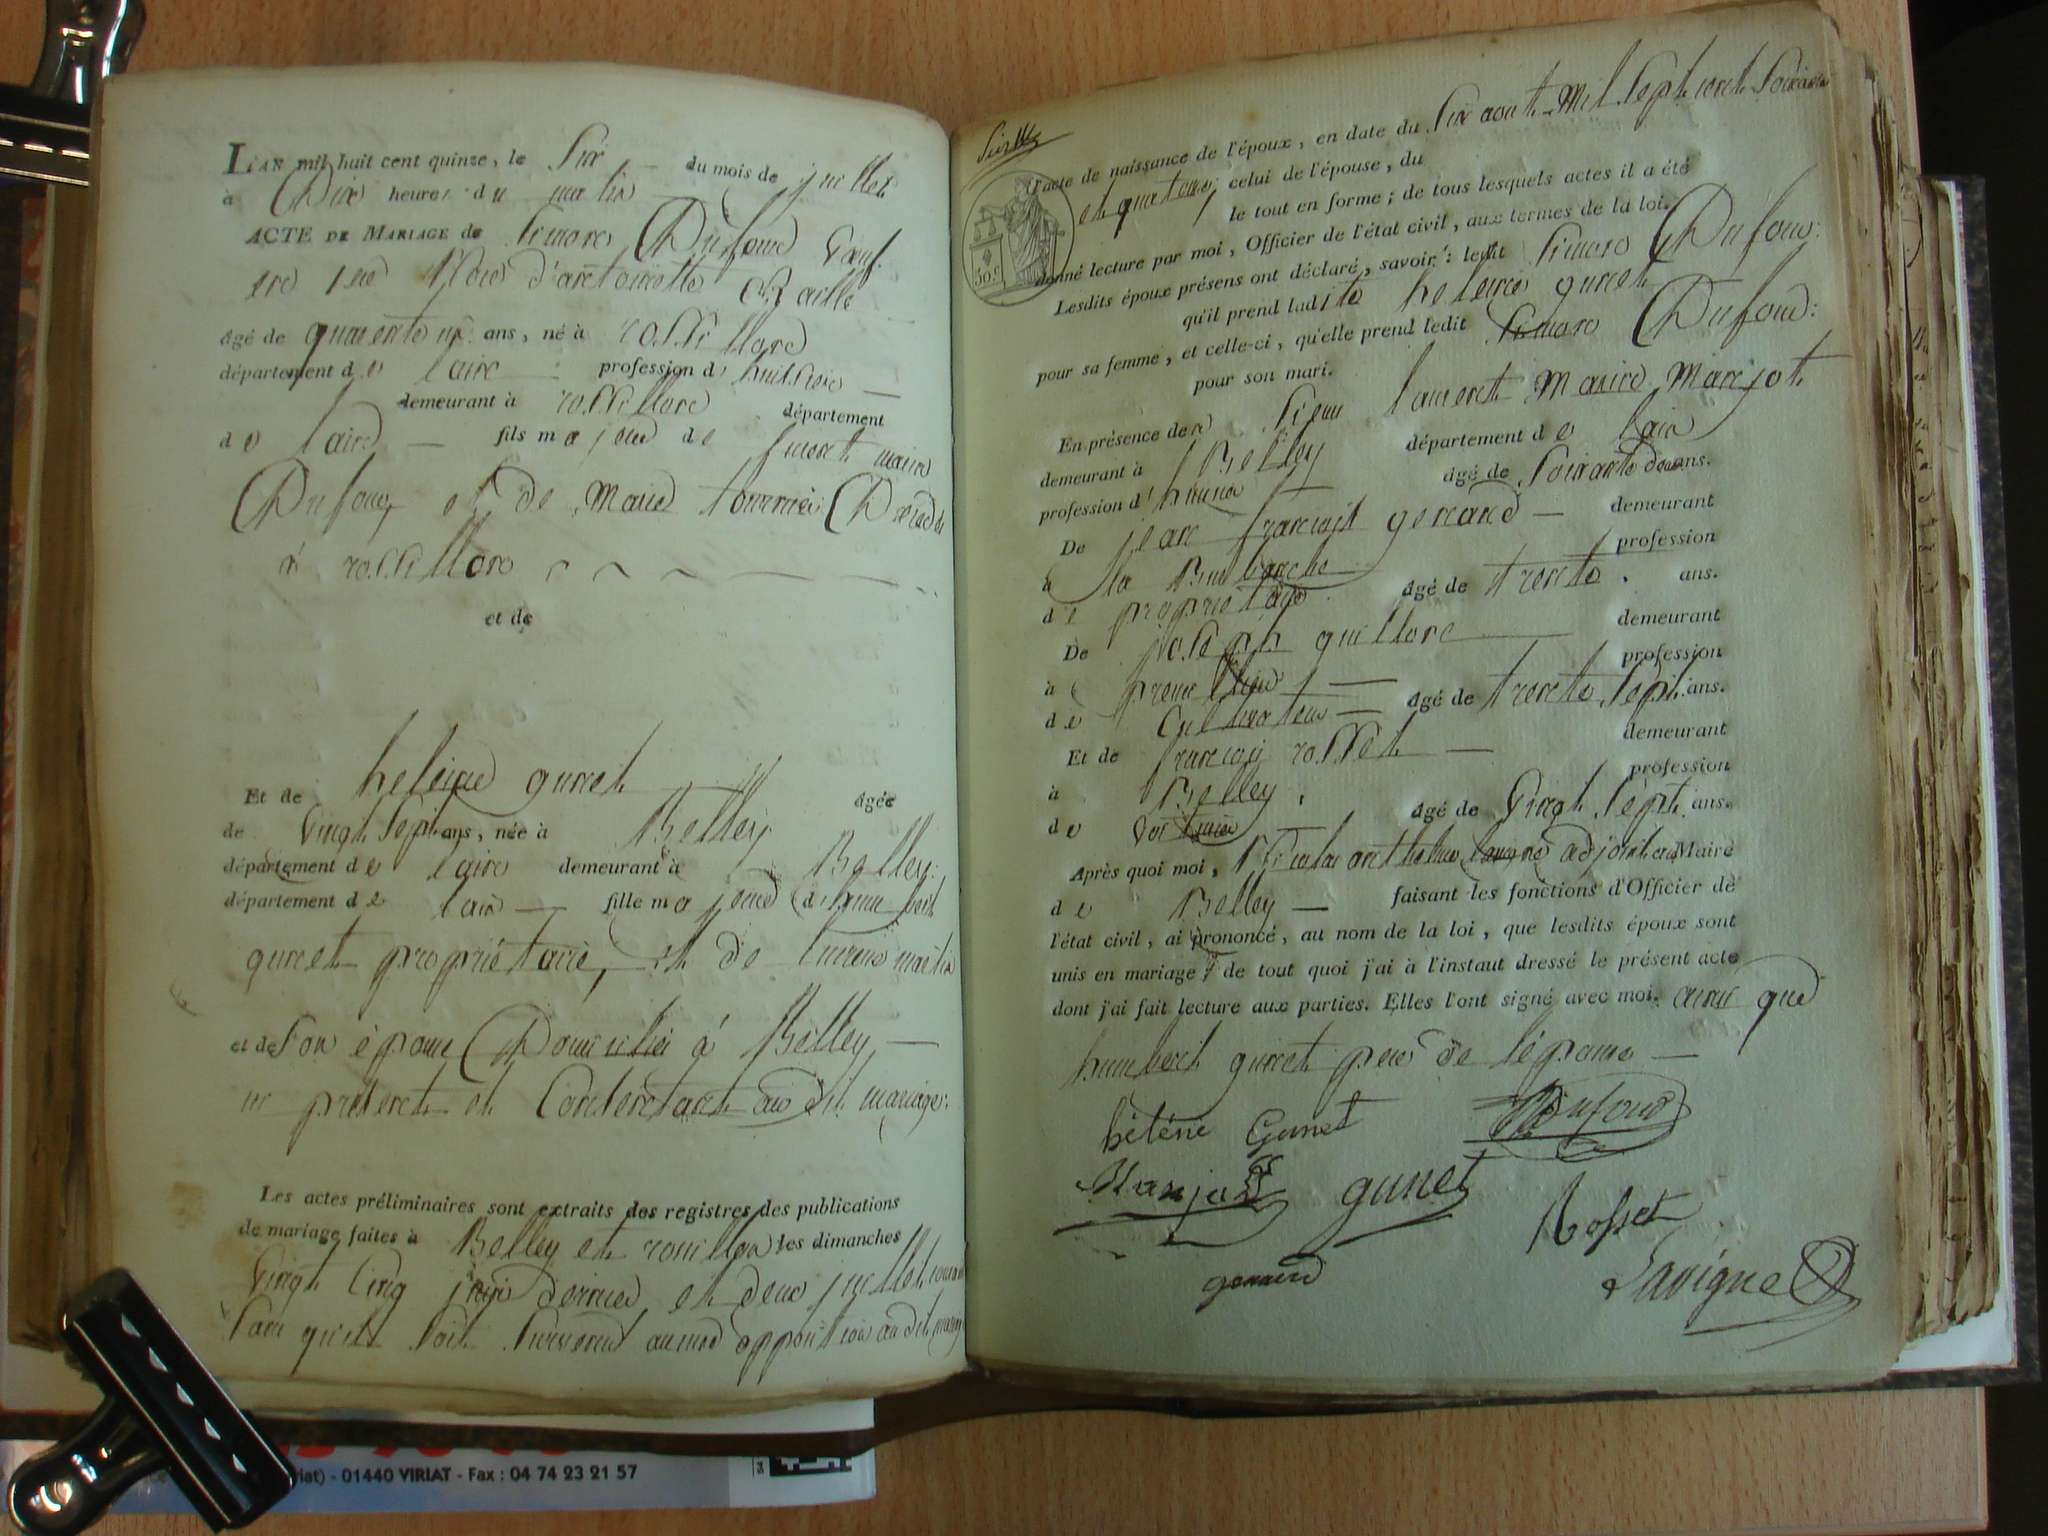 L'AN mil huit cent quinze, le Six du mois de juillet
à Dix heures du matin
ACTE DE MARIAGE de Simon Dufour Veuf
en 1er Noces d'antoinette
âgé de quarente un ans, né à rossillon
département de l'ain profession d'huissier
demeurant à rossillon département
de l'ain fils majeur de
Dufour et de Marie Décédés
à rossillon
et de
Et de heleine gunet âgée
de Vingt Sept ans, née à Belley
département de l'ain demeurant à Belley
département de l'ain fille majeure d'humbert
gunet propriétaire, et de
et de Son épouse Domiciliés à Belley
ici présent et Consentant au dit mariage
Les actes préliminaires sont extraits des registres des publications
de mariage faites à Belley et rossillon les dimanches
Vingt Cinq juin dernier et deux juillet courant
Sans qu'il Soit Survenu aucune opposition au dit mariage
Six
l'acte de naissance de l'époux, en date du Six aout Mil Sept cent Soixante
et quatorze; celui de l'épouse, du
le tout en forme; de tous lesquels actes il a été
donné lecture par moi, Officier de l'état civil, aux termes de la loi.
Lesdits époux présens ont déclaré, savoir: ledit Simon Dufour
qu'il prend ladite heleine gunet
pour sa femme, et celle-ci, qu'elle prend ledit Simon Dufour
pour son mari.
En présence de Marjot
demeurant à Belley département de l'ain
profession d' âgé de Soixante deux ans.
De jean francois gerrand demeurant
à la profession
de propriétaire âgé de trente ans.
De joseph guillon demeurant
à profession
de Cultivateur âgé de trente Sept ans.
Et de francois rosset demeurant
à Belley profession
de Voiturier âgé de Vingt Sept ans.
Après quoi moi, adjoint au Maire
de Belley faisant les fonctions d'Officier de
l'état civil, ai prononcé, au nom de la loi, que lesdits époux sont
unis en mariage; de tout quoi j'ai à l'instant dressé le présent acte
dont j'ai fait lecture aux parties. Elles l'ont signé avec moi. ainsi que
humbert gunet pere de l'épouse
hélène Gunet Dufour
Marjot gunet Rosset
gerrand Lavigne
50 c
iat) - 01440 VIRIAT - Fax : 04 74 23 21 57